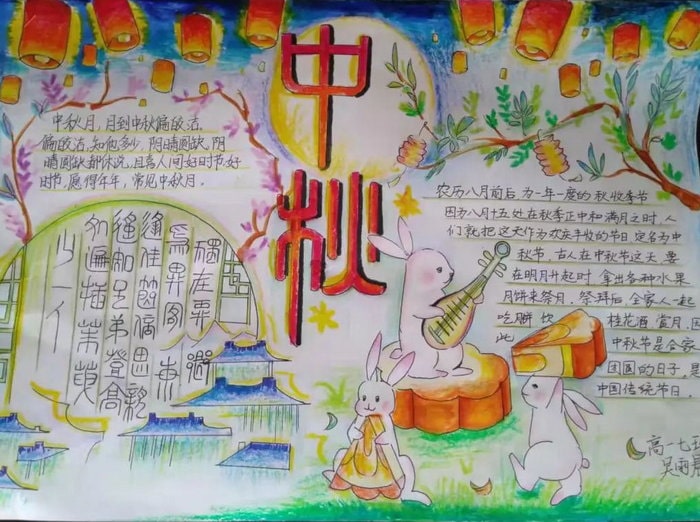 中秋
中秋月，月到中秋偏皎洁，
偏皎洁，知他多少，阴晴圆缺，阴
晴圆缺都休说，且喜人间好时节，好
时节，愿得年年，常见中秋月。
在異
為異客
逢佳節倍思親
遥知兄弟登高
遍插茱萸
少一人
农历八月前后为一年一度的秋收季节
因为八月十五处在秋季正中和满月之时，人
们就把这天作为欢庆丰收的节日，定名为中
秋节，古人在中秋节这天 要
在明月升起时 拿出各种水果
月饼来祭月，祭拜后，全家人一起
吃饼 饮 桂花酒 赏月，因
此 中秋节是合家
团圆的日子，是
中国传统节日。
高一七班
吴雨